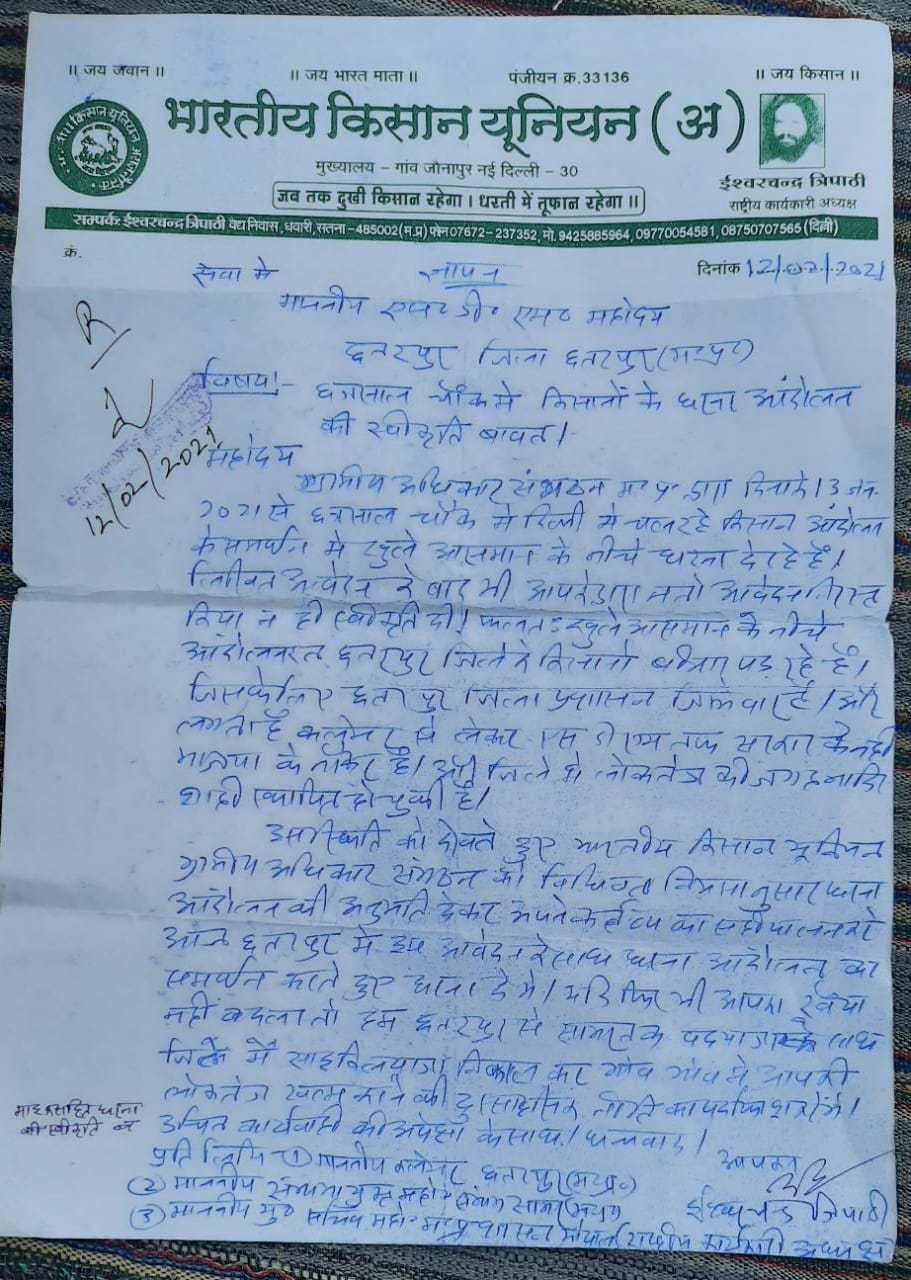 ॥ जय जवान ॥ ॥ जय भारत माता ॥ पंजीयन क्र.33136 ॥ जय किसान ॥
भारतीय किसान यूनियन (अ)
मुख्यालय – गांव जौनापुर नई दिल्ली – 30
जब तक दुखी किसान रहेगा। धरती में तूफान रहेगा ॥
ईश्वरचन्द्र त्रिपाठी
राष्ट्रीय कार्यकारी अध्यक्ष
सम्पर्क ईश्वरचन्द्र त्रिपाठी वैद्य निवास, धवारी, सतना -485002(म.प्र) फोन 07672-237352, मो. 9425885964, 09770054581, 08750707565 (दिल्ली)
क्रं.
दिनांक 12/02/2021
सेवा मे ज्ञापन
माननीय एस० डी० एम० महोदय
छतरपुर जिला छतरपुर (म०प्र०)
विषय:- छत्रसाल चौक मे किसानों के धरना आंदोलन
की स्वीकृति बावत।
महोदय
12/02/2021
ग्रामीण अधिकार संगठन म० प्र० द्वारा दिनांक 13 जन॰
2021 से छत्रसाल चौक मे दिल्ली मे चल रहे किसान आंदोलन
के समर्थन मे खुले आसमान के नीचे धरना दे रहे हैं।
लिखित आवेदन के बाद भी आपके द्वारा न तो आवेदन निरस्त
किया न ही स्वीकृति दी। फलतः खुले आसमान के नीचे
आंदोलनरत छतरपुर जिले के किसानो बीमार पड़ रहे हैं।
जिसके लिए छतरपुर जिला प्रशासन जिम्मेवार है। और
लगता है कलेक्टर से लेकर एस डी एम तक सरकार के नही
भाजपा के नौकर हैं। और जिले मे लोकतंत्र की जगह नादिर
शाही स्थापित हो चुकी है।
उपस्थिति को देखते हुए भारतीय किसान यूनियन
ग्रामीण अधिकार संगठन को विधिवत नियमानुसार धरना
आंदोलन की अनुमति देकर अपने कर्तव्य का सही पालन करे
आज छतरपुर मे इस आवेदन के साथ धरना आंदोलन का
समर्थन करते हुए धरना देगे। यदि फिर भी आपका रवैया
नहीं बदला तो हम छतरपुर से सागर तक पदयात्रा के साथ
जिले में साइकिल यात्रा निकाल कर गांव गांव मे आपकी
लोकतंत्र खत्म करने की दुःसाहसिक नीति का पर्दाफाश करेंगे।
उचित कार्यवाही की अपेक्षा के साथ। धन्यवाद।
धरना
की स्वीकृति
प्रतिलिपि ① माननीय कलेक्टर छतरपुर (म०प्र०)
② माननीय
③ माननीय मुख्य सचिव महो० म०प्र० शासन भोपाल
आपका
ईश्वरचन्द्र त्रिपाठी
राष्ट्रीय कार्यकारी अध्यक्ष